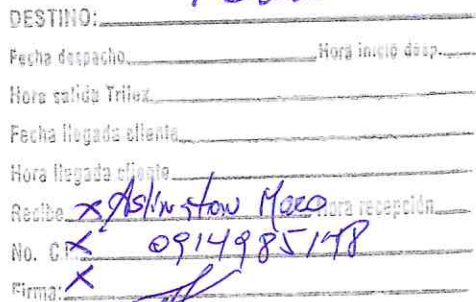 DESTINO:
Fecha despacho Hora inició desp.
Hora salida Trilex
Fecha llegada cliente
Hora llegada cliente
Recibe x Hora recepción
No. C.I. x 0914985148
Firma: x